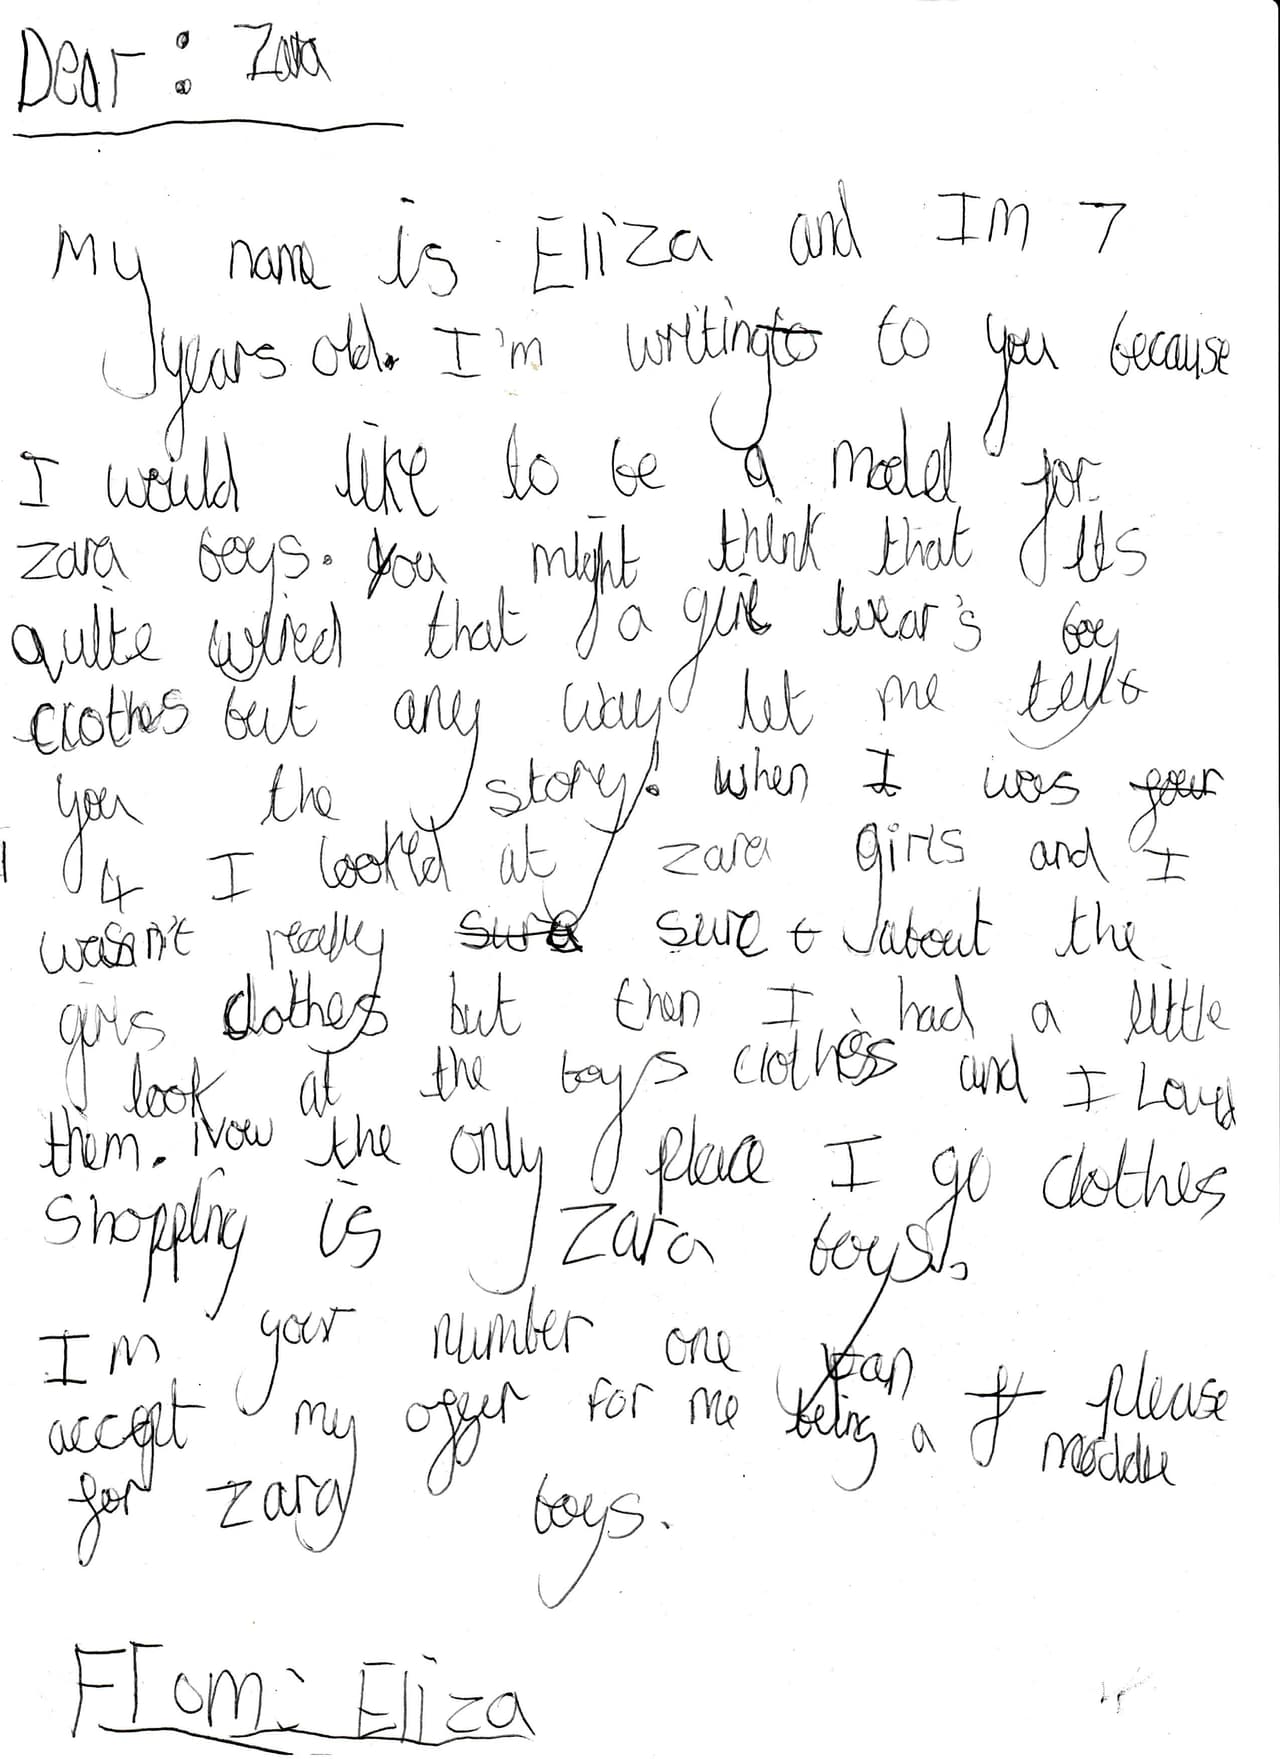 Dear : Zara
My name is Eliza and Im 7
years old. I'm writing to to you because
I would like to be a model for
zara boys. You might think that its
quite wired that a girl wear's boy
clothes but any way let me tell
you the story. when I was four
4 I looked at zara girls and I
wasn't really sure sure t about the
girls clothes but then I had a little
look at the boys clothes and I Loved
them. Now the only place I go clothes
shopping is Zara boys.
Im your number one fan f please
accept my offer for me being a moddle
for zara boys.
From: Eliza